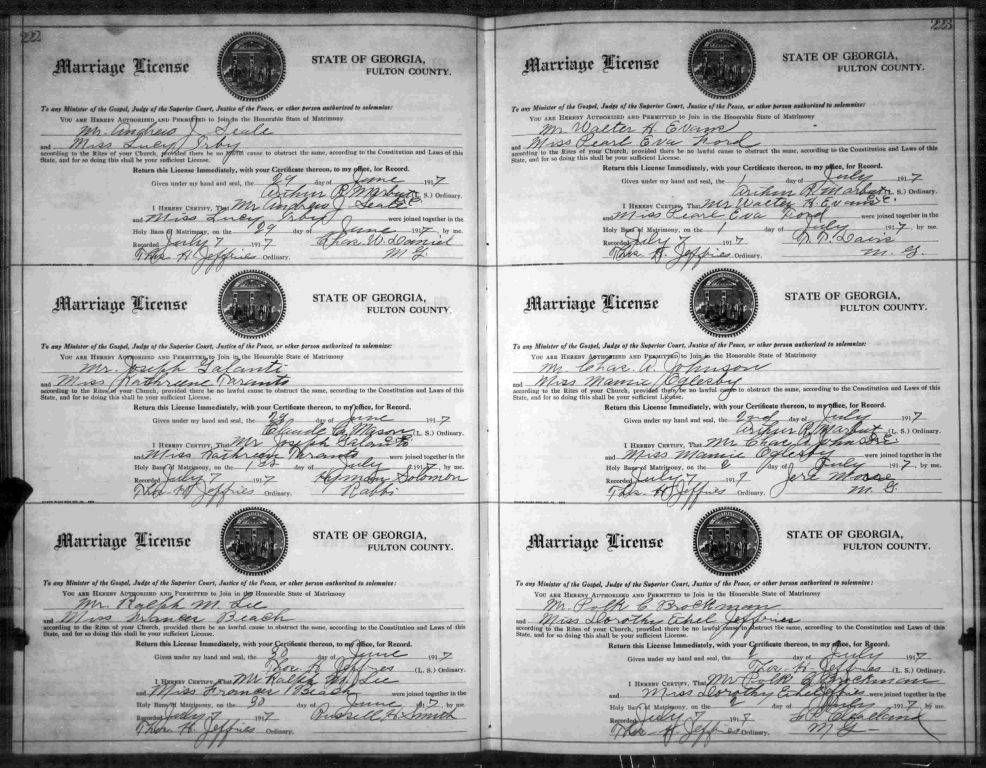 222
Marriage License
STATE OF GEORGIA,
FULTON COUNTY.
To any Minister of the Gospel, Judge of the Superior Court, Justice of the Peace, or other person authorized to solemnize:
YOU ARE HEREBY AUTHORIZED AND PERMITTED to Join in the Honorable State of Matrimony
Mr. Andrew J. Seale
and Miss Lucy Irby
according to the Rites of your Church, provided there be no lawful cause to obstruct the same, according to the Constitution and Laws of this
State, and for so doing this shall be your sufficient License.
Return this License Immediately, with your Certificate thereon, to my office, for Record.
Given under my hand and seal, the 29 day of June 1917
Arthur R. Marbut (L. S.) Ordinary.
I HEREBY CERTIFY, That Mr Andrew J. Seale
and Miss Lucy Irby were joined together in the
Holy Bans of Matrimony, on the 29 day of June 1917, by me.
Recorded July 7 1917 Chas. W. Daniel
Thos. H. Jeffries Ordinary. M G.
Marriage License
STATE OF GEORGIA,
FULTON COUNTY.
To any Minister of the Gospel, Judge of the Superior Court, Justice of the Peace, or other person authorized to solemnize:
YOU ARE HEREBY AUTHORIZED AND PERMITTED to Join in the Honorable State of Matrimony
Mr. Joseph Galanti
and Miss Kathrene Taranto
according to the Rites of your Church, provided there be no lawful cause to obstruct the same, according to the Constitution and Laws of this
State, and for so doing this shall be your sufficient License.
Return this License Immediately, with your Certificate thereon, to my office, for Record.
Given under my hand and seal, the 29 day of June 1917
Claude C. Mason (L. S.) Ordinary.
I HEREBY CERTIFY, That Mr Joseph Galanti
and Miss Kathrene Taranto were joined together in the
Holy Bans of Matrimony, on the 1st day of July 1917, by me.
Recorded July 7 1917 Hyman Solomon
Thos. H. Jeffries Ordinary. Rabbi
Marriage License
STATE OF GEORGIA,
FULTON COUNTY.
To any Minister of the Gospel, Judge of the Superior Court, Justice of the Peace, or other person authorized to solemnize:
YOU ARE HEREBY AUTHORIZED AND PERMITTED to Join in the Honorable State of Matrimony
Mr. Ralph M. Lee
and Miss Frances Beach
according to the Rites of your Church, provided there be no lawful cause to obstruct the same, according to the Constitution and Laws of this
State, and for so doing this shall be your sufficient License.
Return this License Immediately, with your Certificate thereon, to my office, for Record.
Given under my hand and seal, the 30 day of June 1917
Thos. H. Jeffries (L. S.) Ordinary.
I HEREBY CERTIFY, That Mr Ralph M. Lee
and Miss Frances Beach were joined together in the
Holy Bans of Matrimony, on the 30 day of June 1917, by me.
Recorded July 7 1917 Russell K. Smith
Thos. H. Jeffries Ordinary.
223
Marriage License
STATE OF GEORGIA,
FULTON COUNTY.
To any Minister of the Gospel, Judge of the Superior Court, Justice of the Peace, or other person authorized to solemnize:
YOU ARE HEREBY AUTHORIZED AND PERMITTED to Join in the Honorable State of Matrimony
Mr Walter H Evans
and Miss Pearl Eva Nord
according to the Rites of your Church, provided there be no lawful cause to obstruct the same, according to the Constitution and Laws of this
State, and for so doing this shall be your sufficient License.
Return this License Immediately, with your Certificate thereon, to my office, for Record.
Given under my hand and seal, the 1 day of July 1917
Arthur R. Marbut (L. S.) Ordinary.
I HEREBY CERTIFY, That Mr Walter H. Evans
and Miss Pearl Eva Nord were joined together in the
Holy Bans of Matrimony, on the 1 day of July 1917, by me.
Recorded July 7 1917 Davis
Thos. H. Jeffries Ordinary. M. G.
Marriage License
STATE OF GEORGIA,
FULTON COUNTY.
To any Minister of the Gospel, Judge of the Superior Court, Justice of the Peace, or other person authorized to solemnize:
YOU ARE HEREBY AUTHORIZED AND PERMITTED to Join in the Honorable State of Matrimony
Mr. Chas. A. Johnson
and Miss Mamie Oglesby
according to the Rites of your Church, provided there be no lawful cause to obstruct the same, according to the Constitution and Laws of this
State, and for so doing this shall be your sufficient License.
Return this License Immediately, with your Certificate thereon, to my office, for Record.
Given under my hand and seal, the 2nd day of July 1917
Arthur R. Marbut (L. S.) Ordinary.
I HEREBY CERTIFY, That Mr Chas. A. Johnson
and Miss Mamie Oglesby were joined together in the
Holy Bans of Matrimony, on the 2 day of July 1917, by me.
Recorded July 7 1917 Jere Moore
Thos. H. Jeffries Ordinary. M. G
Marriage License
STATE OF GEORGIA,
FULTON COUNTY.
To any Minister of the Gospel, Judge of the Superior Court, Justice of the Peace, or other person authorized to solemnize:
YOU ARE HEREBY AUTHORIZED AND PERMITTED to Join in the Honorable State of Matrimony
Mr. Polk C Brockman
and Miss Dorothy Ethel Jeffries
according to the Rites of your Church, provided there be no lawful cause to obstruct the same, according to the Constitution and Laws of this
State, and for so doing this shall be your sufficient License.
Return this License Immediately, with your Certificate thereon, to my office, for Record.
Given under my hand and seal, the day of July 1917
Thos. H. Jeffries (L. S.) Ordinary.
I HEREBY CERTIFY, That Mr Polk C Brockman
and Miss Dorothy Ethel Jeffries were joined together in the
Holy Bans of Matrimony, on the 2 day of July 1917, by me.
Recorded July 7 1917
Thos. H. Jeffries Ordinary. M G